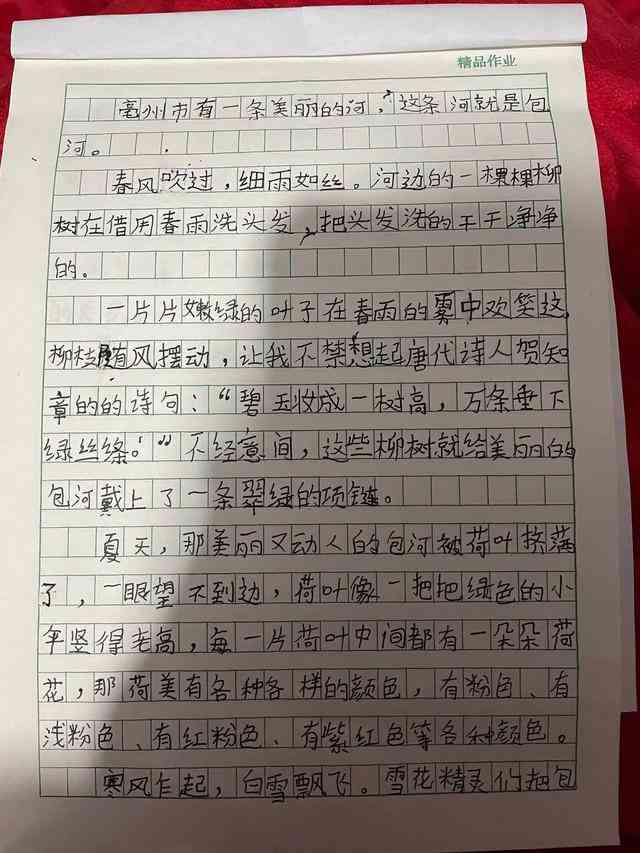 精品作业
亳州市有一条美丽的河,这条河就是包
河。
春风吹过,细雨如丝。河边的一棵棵柳
树在借用春雨洗头发,把头发洗的干干净净
的。
一片片嫩绿的叶子在春雨的雾中欢笑这,
柳枝随风摆动,让我不禁想起唐代诗人贺知
章的的诗句:“碧玉妆成一树高,万条垂下
绿丝绦。”不经意间,这些柳树就给美丽的
包河戴上了一条翠绿的项链。
夏天,那美丽又动人的包河被荷叶挤满
了,一眼望不到边,荷叶像一把把绿色的小
伞竖得老高,每一片荷叶中间都有一朵朵荷
花,那荷美有各种各样的颜色,有粉色、有
浅粉色、有红粉色、有紫红色等各种颜色。
寒风乍起,白雪飘飞。雪花精灵们把包